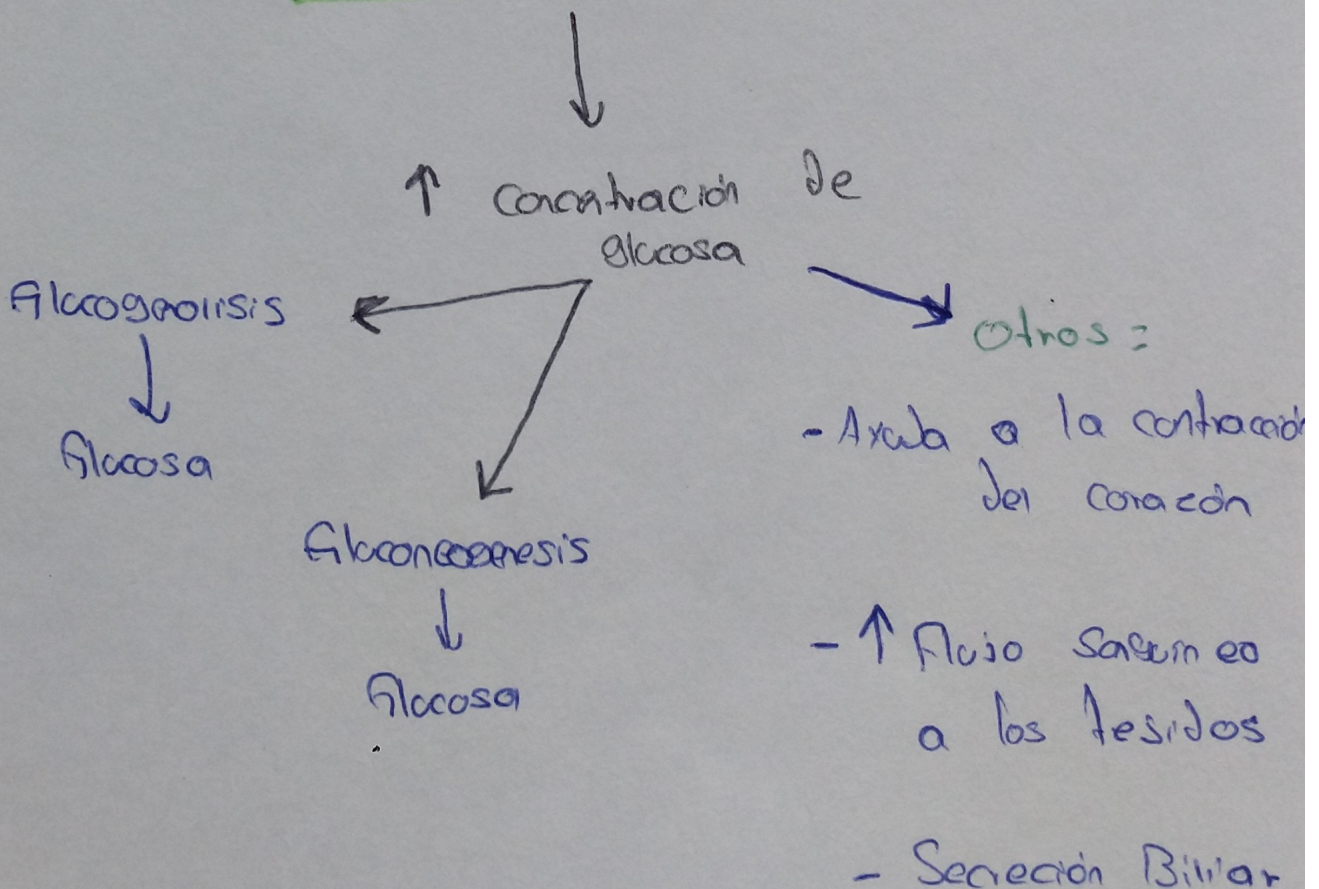 ↑ Concentración de
glucosa
Glucogenolisis
↓
Glucosa
Gluconeogenesis
↓
Glucosa
Otros:
- Ayuda a la contracción
del corazón
- ↑ Flujo sanguineo
a los tejidos
- Secreción Biliar